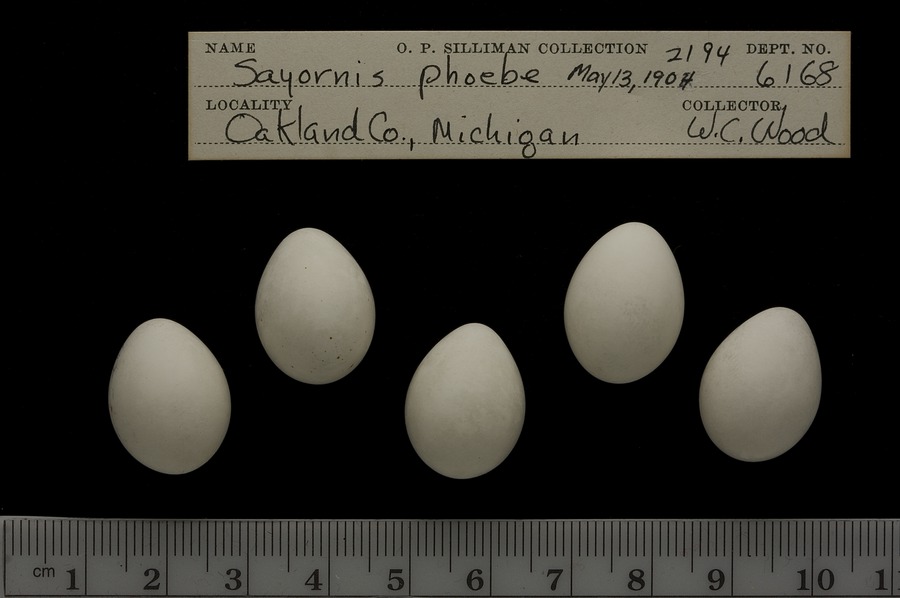 NAME O. P. SILLIMAN COLLECTION 2194 DEPT. NO.
Sayornis phoebe May 13, 1904 6168
LOCALITY COLLECTOR
Oakland Co., Michigan W.C. Wood
cm 1 2 3 4 5 6 7 8 9 10 1